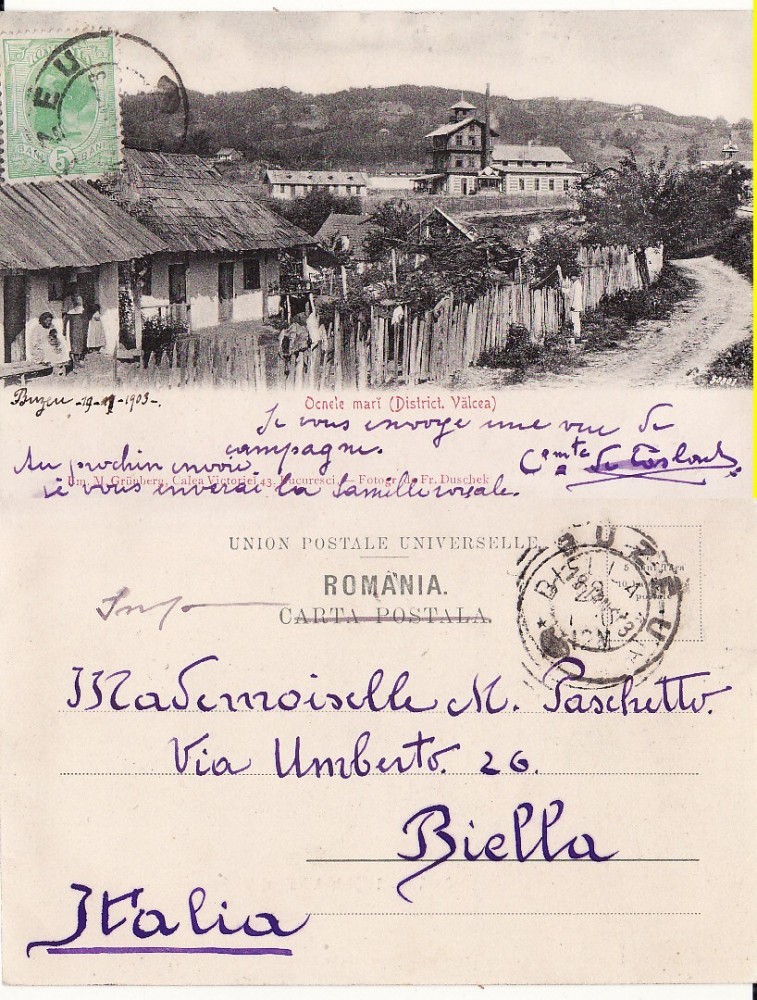 ROMANIA
5 BANI 5 BANI
ZEU
Buzeu -19-II-1903-.
Ocnele marĭ (District. Vâlcea)
Je vous envoye une vue de
campagne.
Au prochin envoie
Em. M. Grünberg, Calea Victoriei 43, Bucuresci. — Fotogr. de Fr. Duschek
je vous enverai la famille royale.
UNION POSTALE UNIVERSELLE
ROMÂNIA.
CARTA POSTALA.
BUZEU
Mademoiselle M. Paschetto.
Via Umberto. 26.
Biella
Italia